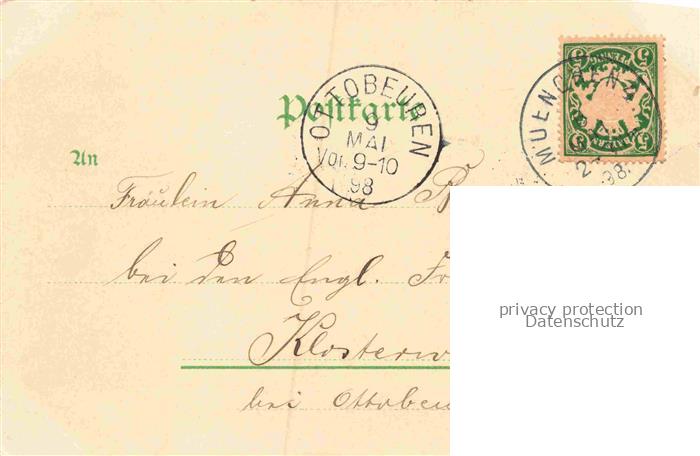 Postkarte
OTTOBEUREN
9
MAI
Vor. 9-10
98
MUENCHEN
98.
5 5
An
Fräulein Anna
bei den Engl.
Klosterw
bei Ottobeu
privacy protection
Datenschutz